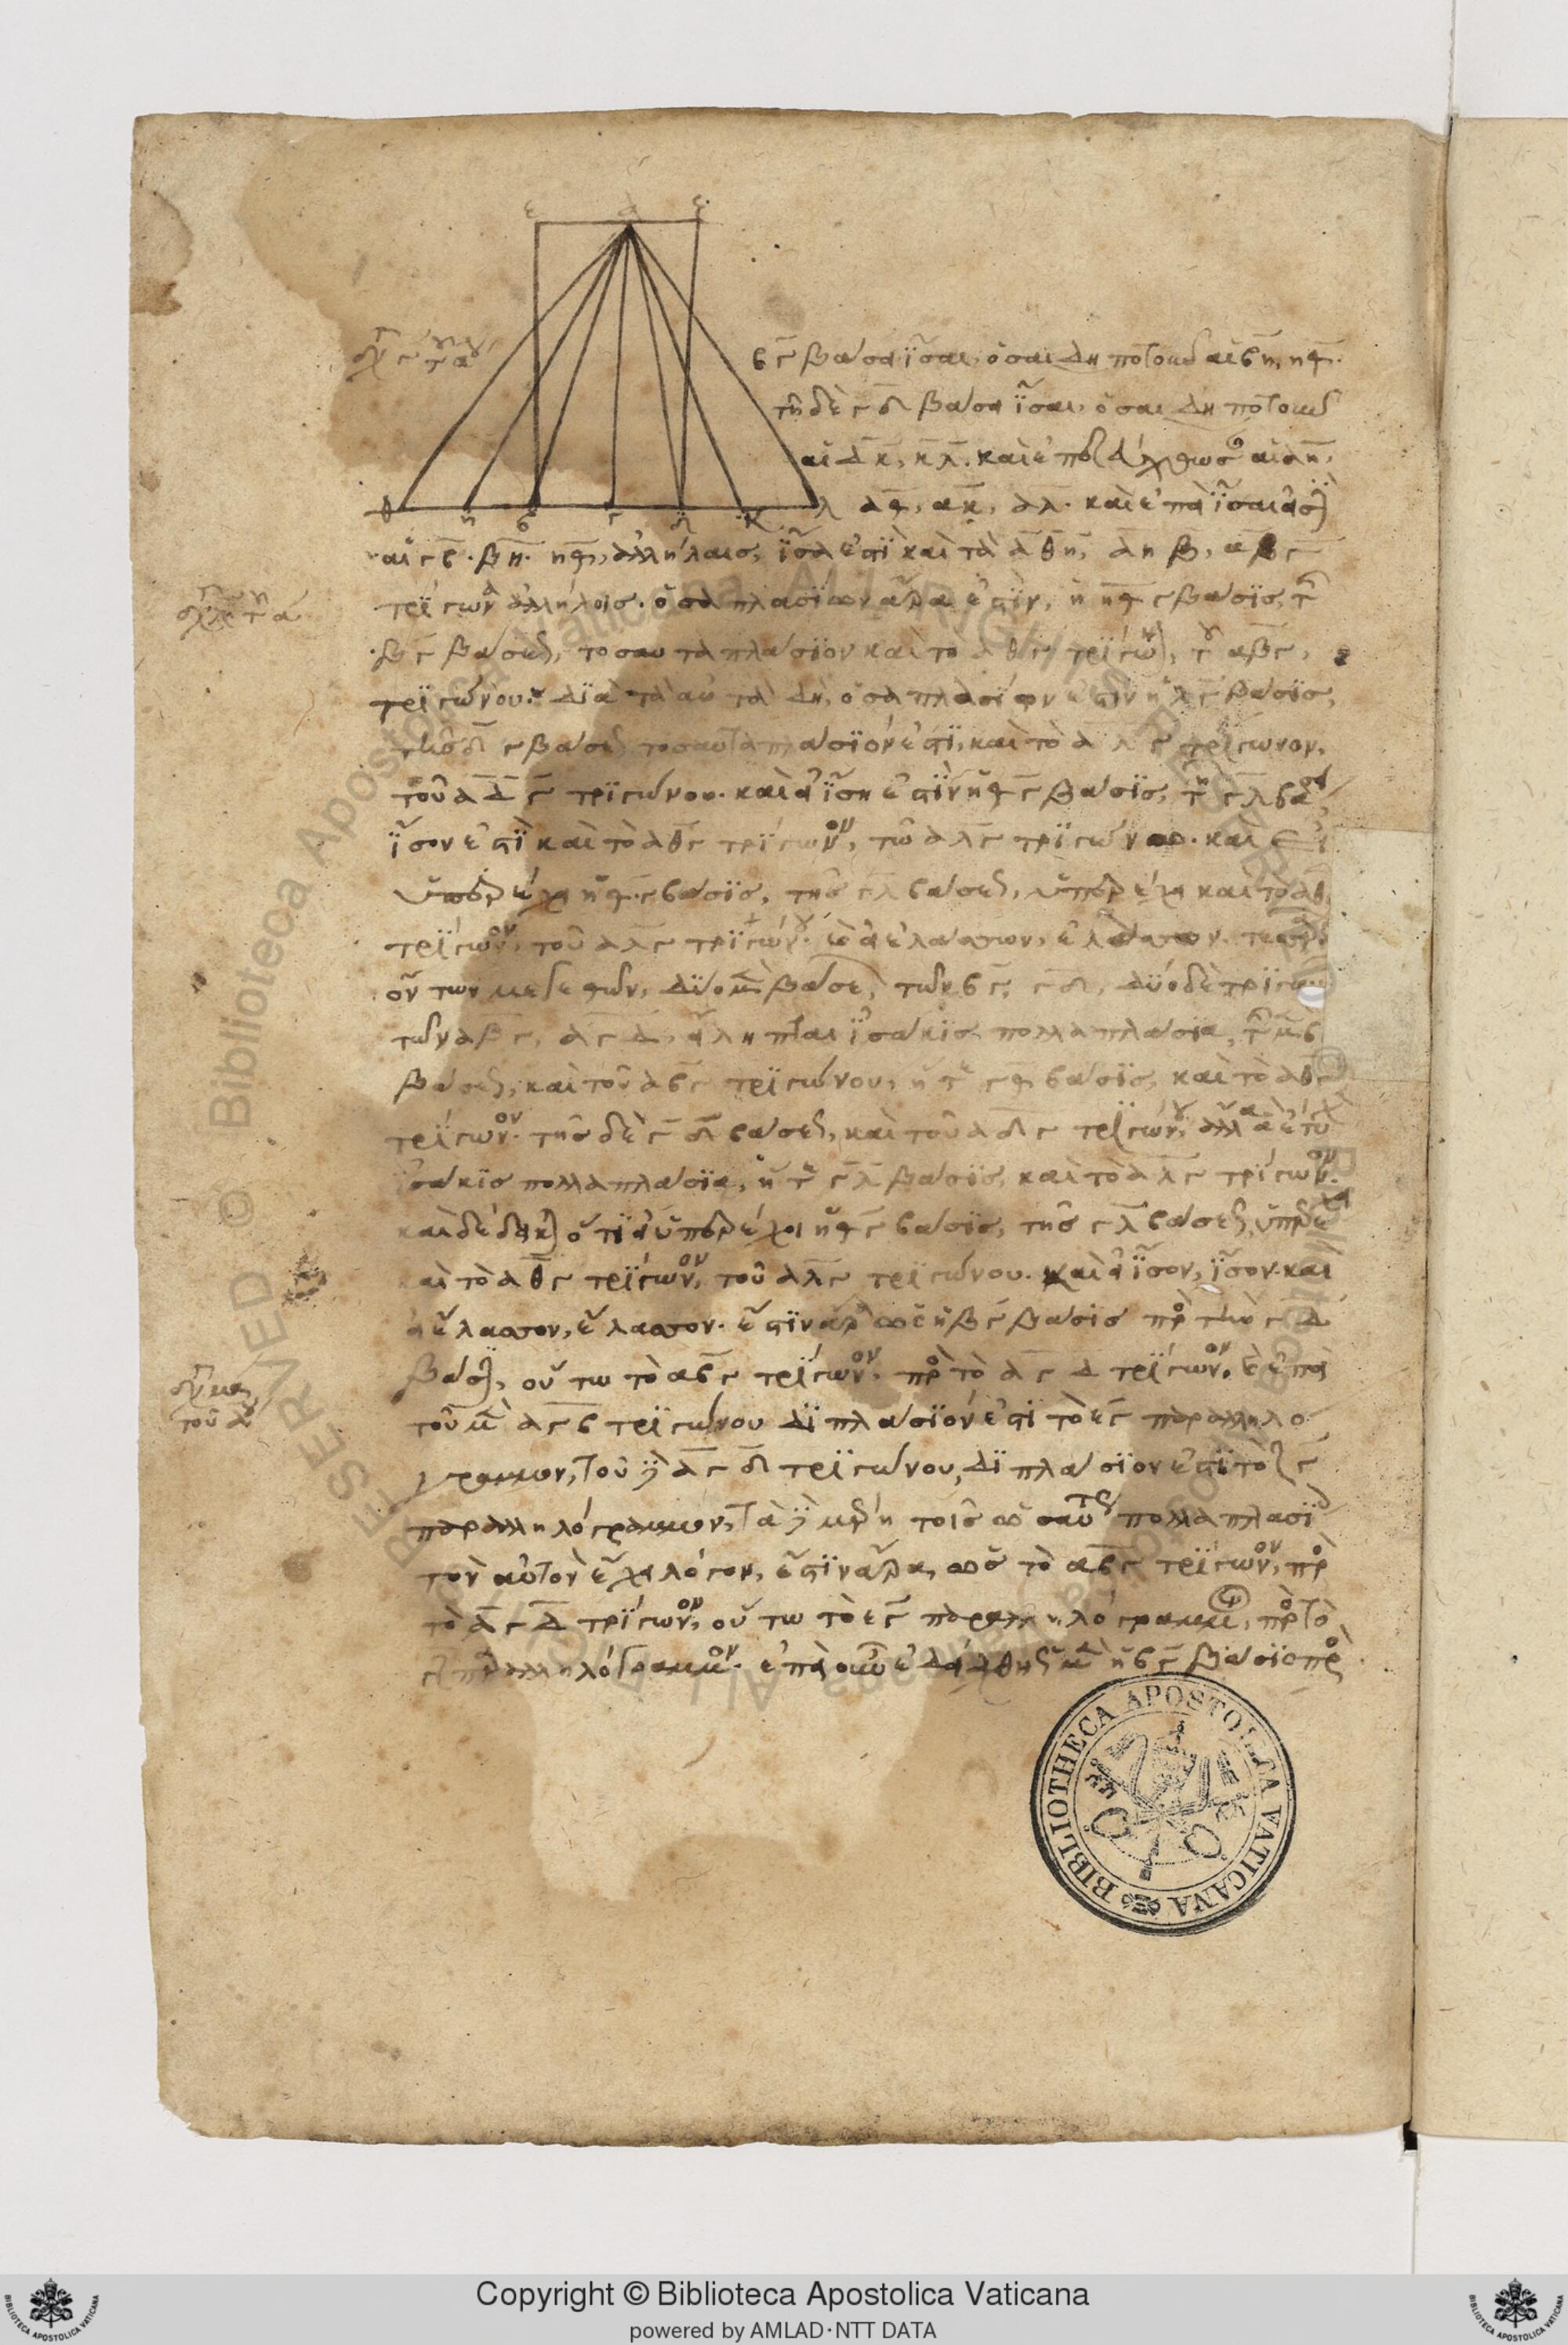 ε α ζ
βγ βάσει ἴσαι, ὅσαι δη ποτοῦν αἱ βη, ηθ.
τῆ δὲ γδ βάσει ἴσαι, ὅσαι δη ποτοῦν
αἱ δκ, κλ. καὶ ἐπεζεύχθωσαν αἱ αη,
θ η β γ δ κ λ
αθ, ακ, αλ. καὶ ἐπεὶ ἴσαι εἰσὶν
αἱ γβ. βη. ηθ, ἀλλήλαις, ἴσα ἐστὶ καὶ τὰ αθη, αηβ, αβγ
τρίγωνα ἀλλήλοις. ὁσαπλασίων ἄρα ἐστὶν, ἡ θγ βάσις, τῆς
βγ βάσεως, τοσαυταπλάσιον καὶ τὸ αθγ τρίγωνον, τοῦ αβγ,
τριγώνου. διὰ τὰ αὐτὰ δη, ὁσαπλασίων ἐστὶν ἡ λγ βάσις,
τῆς δγ βάσεως τοσαυταπλάσιόν ἐστι, καὶ τὸ αλγ τρίγωνον,
τοῦ αδγ τριγώνου. καὶ εἰ ἴση ἐστὶν ἡ θγ βάσις, τῆ γλ βάσει,
ἴσον ἐστὶ καὶ τὸ αθγ τρίγωνον, τῶ αλγ τριγώνω. καὶ εἰ
ὑπερέχει ἡ θγ βάσις, τῆς γλ βάσεως, ὑπερέχει καὶ τὸ αθγ
τρίγωνον, τοῦ αλγ τριγώνου. καὶ εἰ ἐλάττων, ἔλαττον. τεσσάρων
οὖν των μεγεθῶν, δύο μὲν βάσεων, τῶν βγ, γδ, δύο δὲ τριγώνων
τῶν αβγ, αγδ, εἴληπται ἰσάκις πολλαπλάσια, τῆς μὲν βγ
βάσεως, καὶ τοῦ αβγ τριγώνου, ἥ τε γθ βάσις, καὶ τὸ αθγ
τρίγωνον. τῆς δὲ γδ βάσεως, καὶ τοῦ αδγ τριγώνου, ἄλλα ἃ ἔτυχεν
ἰσάκις πολλαπλάσια, ἥ τε γλ βάσις, καὶ τὸ αλγ τρίγωνον.
καὶ δέδεικται ὅτι εἰ ὑπερέχει ἡ θγ βάσις, τῆς γλ βάσεως, ὑπερέχει
καὶ τὸ αθγ τρίγωνον, τοῦ αλγ τριγώνου. καὶ εἰ ἴσον, ἴσον. και
εἰ ἔλαττον, ἔλαττον. ἔστιν ἄρα ὡς ἡ βγ βάσις πρὸς τὴν γδ
βάσιν, οὕτω τὸ αβγ τρίγωνον, πρὸς τὸ αγδ τρίγωνον. καὶ ἐπεὶ
τοῦ μὲν αγβ τριγώνου διπλάσιόν ἐστι τὸ εγ παραλληλό
γραμμον, τοῦ δὲ αγδ τριγώνου, διπλάσιον ἐστι τὸ ζγ
παραλληλόγραμμον, τὰ δὲ μέρη τοῖς ὡσαύτως πολλαπλασίοις
τὸν αὐτὸν ἔχει λόγον, ἔστιν ἄρα, ὡς τὸ αβγ τρίγωνον, πρὸς
τὸ αγδ τρίγωνον, οὕτω τὸ εγ παραλληλόγραμμον, πρὸς τὸ
ζγ παραλληλόγραμμον. ἐπεὶ οὖν ἐδείχθη ὡς μὲν ἡ βγ βάσις πρὸς
BIBLIOTHECA APOSTOLICA VATICANA
Biblioteca Apostolica Vaticana ALL RIGHTS RESERVED ©
Copyright © Biblioteca Apostolica Vaticana
powered by AMLAD·NTT DATA